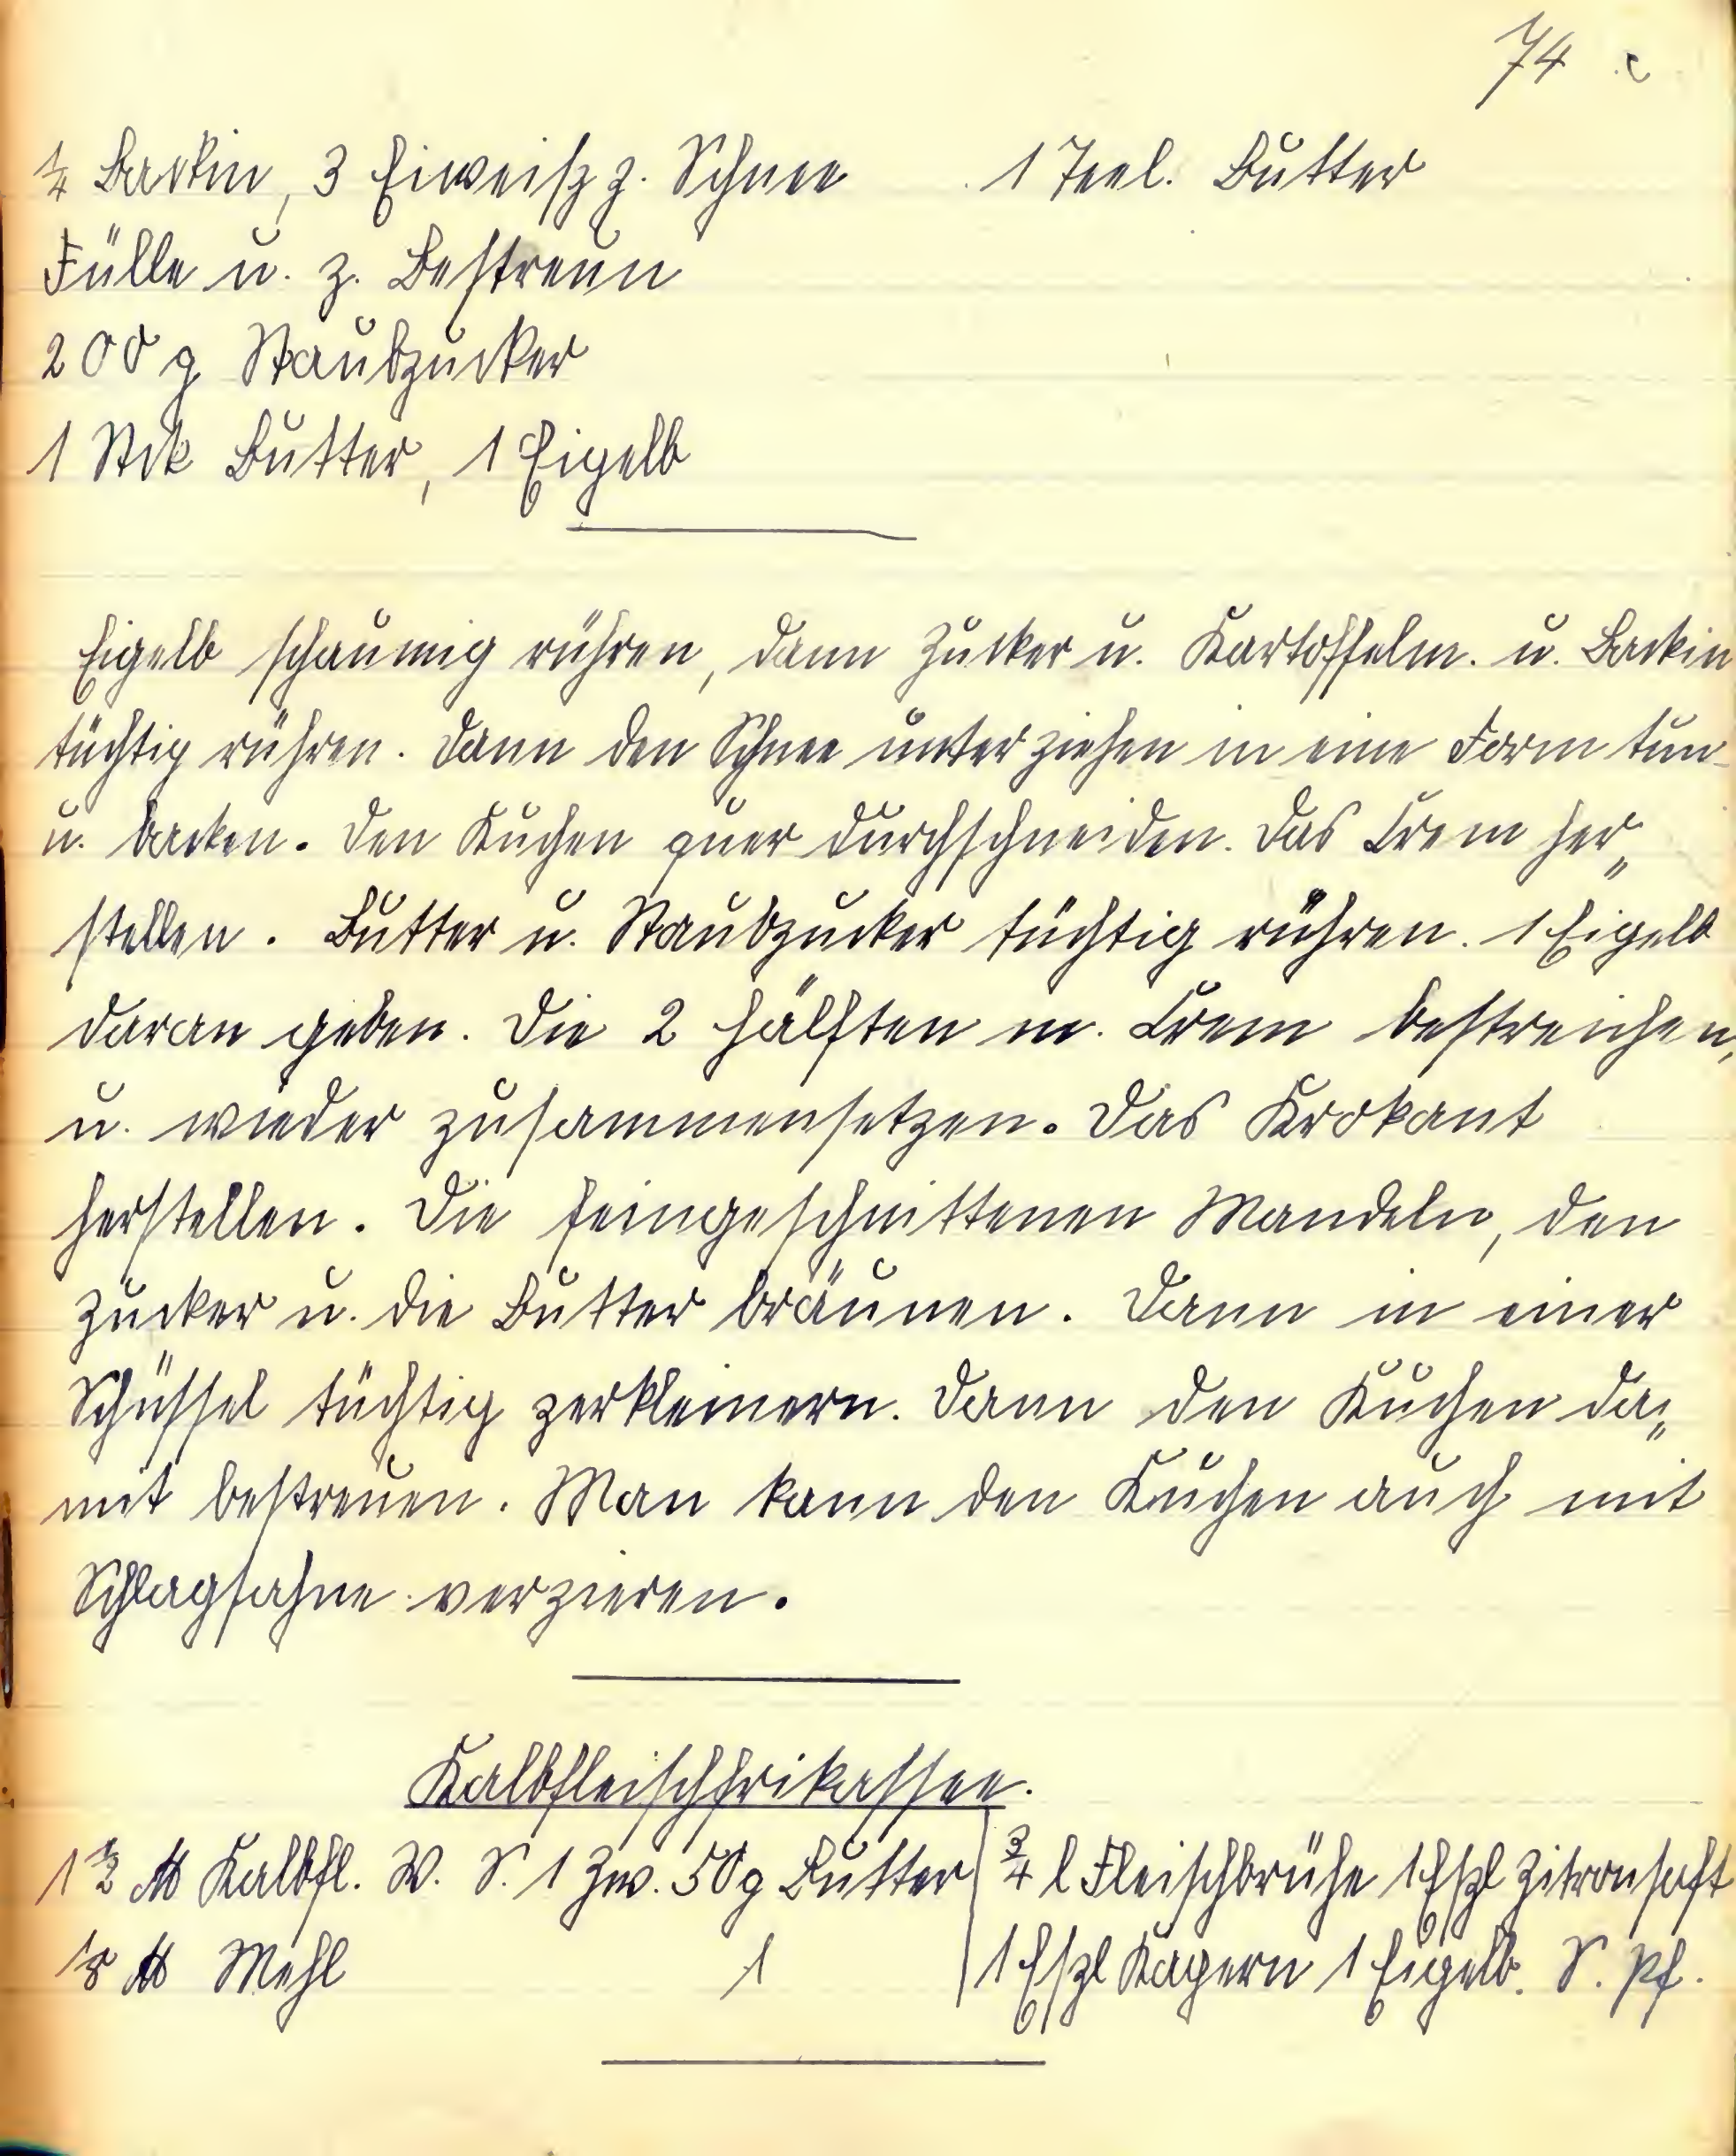 74
¼ Backin, 3 Eiweiß z. Schnee 1 Teel. Butter
Fülle u. z. Bestreun
200 g Staubzucker
1 Stck Butter, 1 Eigelb
Eigelb schaumig rühren, dann Zucker u. Kartoffelm. u. Backin
tüchtig rühren. Dann den Schnee unter ziehen in eine Form tun
u. backen. Den Kuchen quer durchschneiden. Das Crem her„
stellen. Butter u. Staubzucker tüchtig rühren. 1 Eigelb
daran geben. Die 2 Hälften m. Crem bestreichen,
u. wieder zusammensetzen. Das Krokant
herstellen. Die feingeschnittenen Mandeln, den
Zucker u. die Butter bräunen. Dann in einer
Schüssel tüchtig zerkleinern. Dann den Kuchen da„
mit bestreuen. Man kann den Kuchen auch mit
Schlagsahne verzieren.
Kalbfleischfrikassee.
1 ½ ℔ Kalbfl. W. S. 1 Zw. 50 g Butter ¾ l Fleischbrühe 1 Eßl Zitronsaft
⅛ ℔ Mehl 1 Eßl Kapern 1 Eigelb. S. Pf.